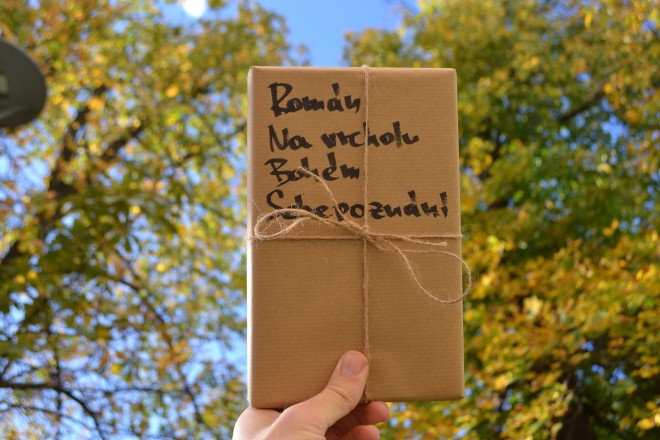 Román
Na vrcholu
Bohém
Sebepoznání